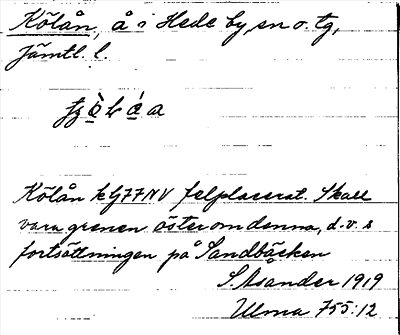 Kölån, å i Hede by, sn o. tg,
Jämtl. l.
Kölån kG77NV felplacerat. Skall
vara grenen öster om denna, d.v.s
fortsättningen på Sandbäcken
S. Asander 1919
Ulma 755:12